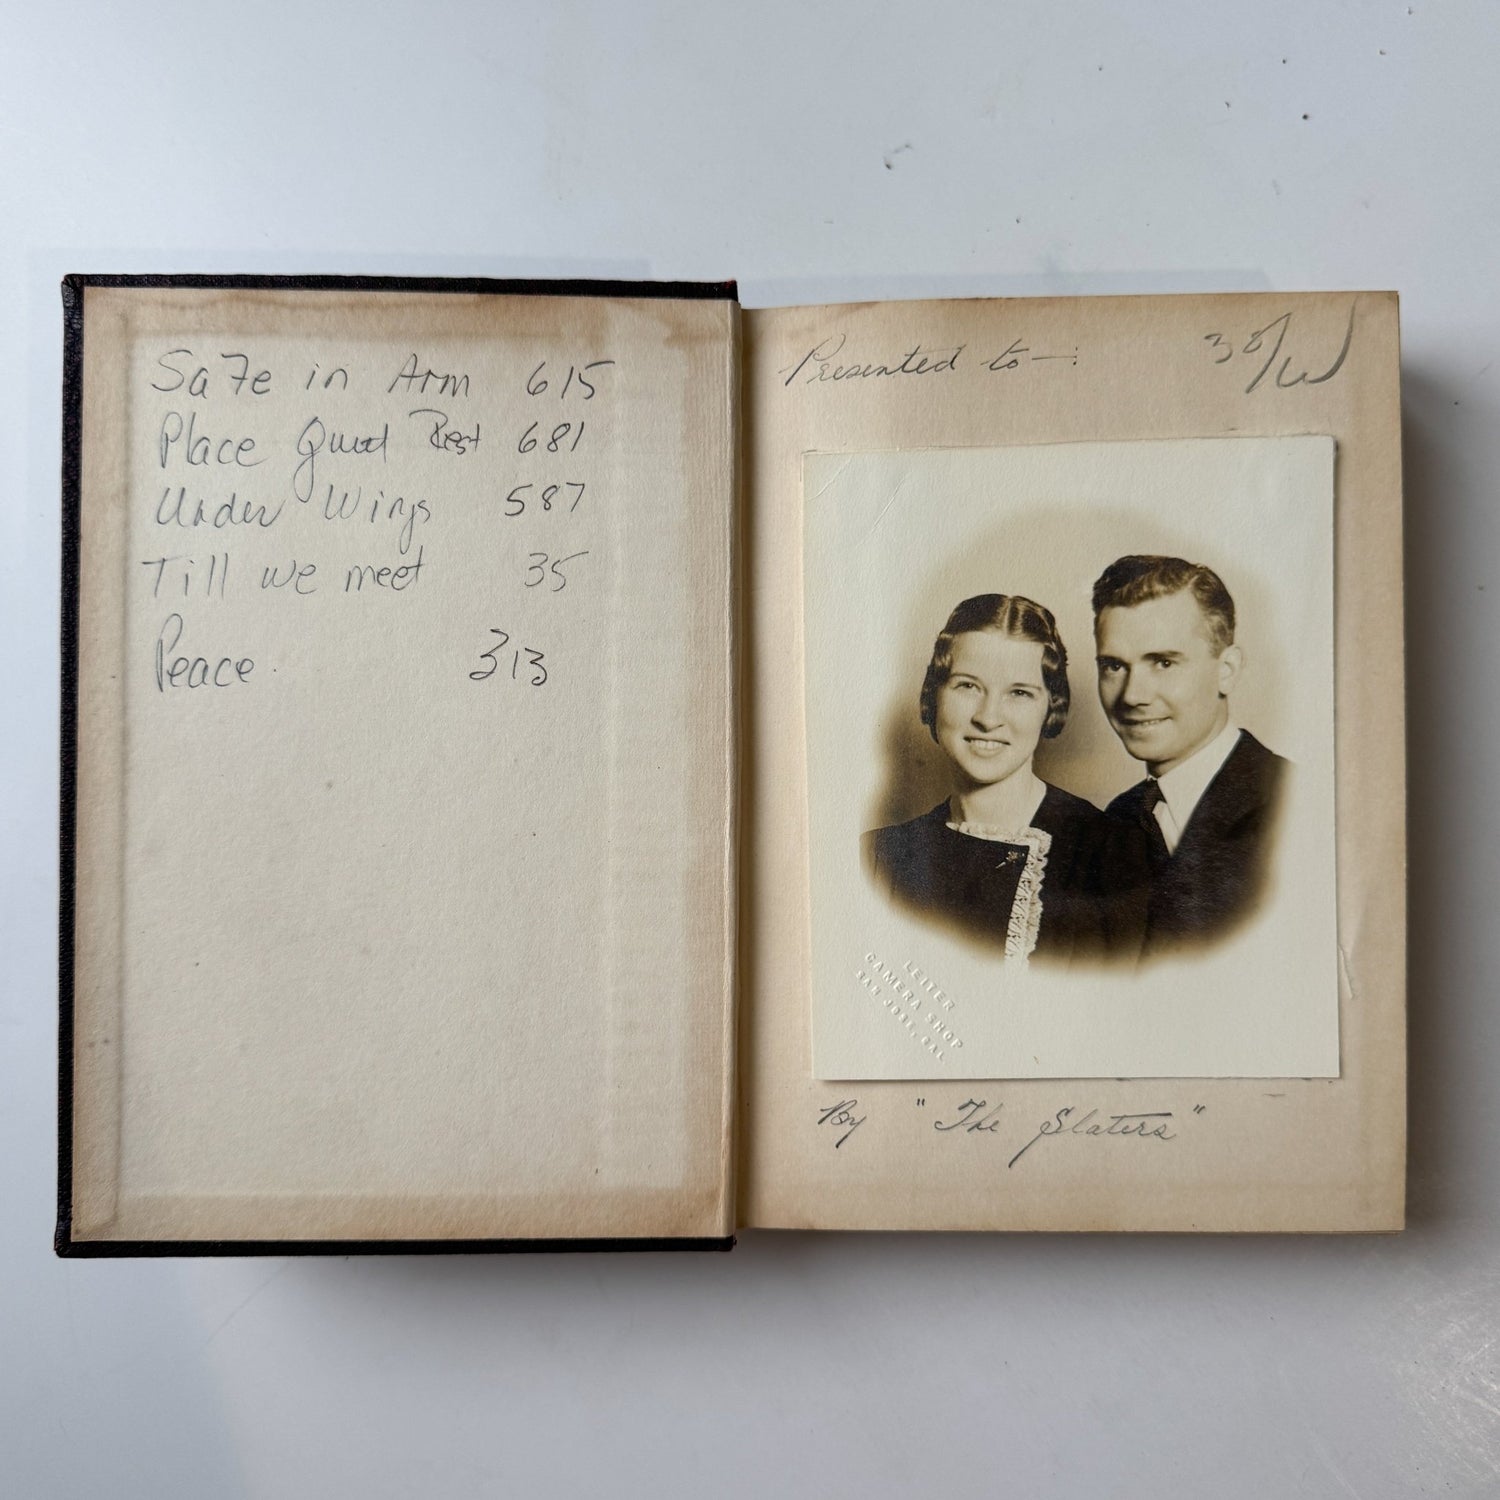 Safe in Arm 615
Place Quiet Rest 681
Under Wings 587
Till we meet 35
Peace. 313
Presented to—:
By "The Slaters"
LEITER
CAMERA SHOP
SAN JOSE, CAL